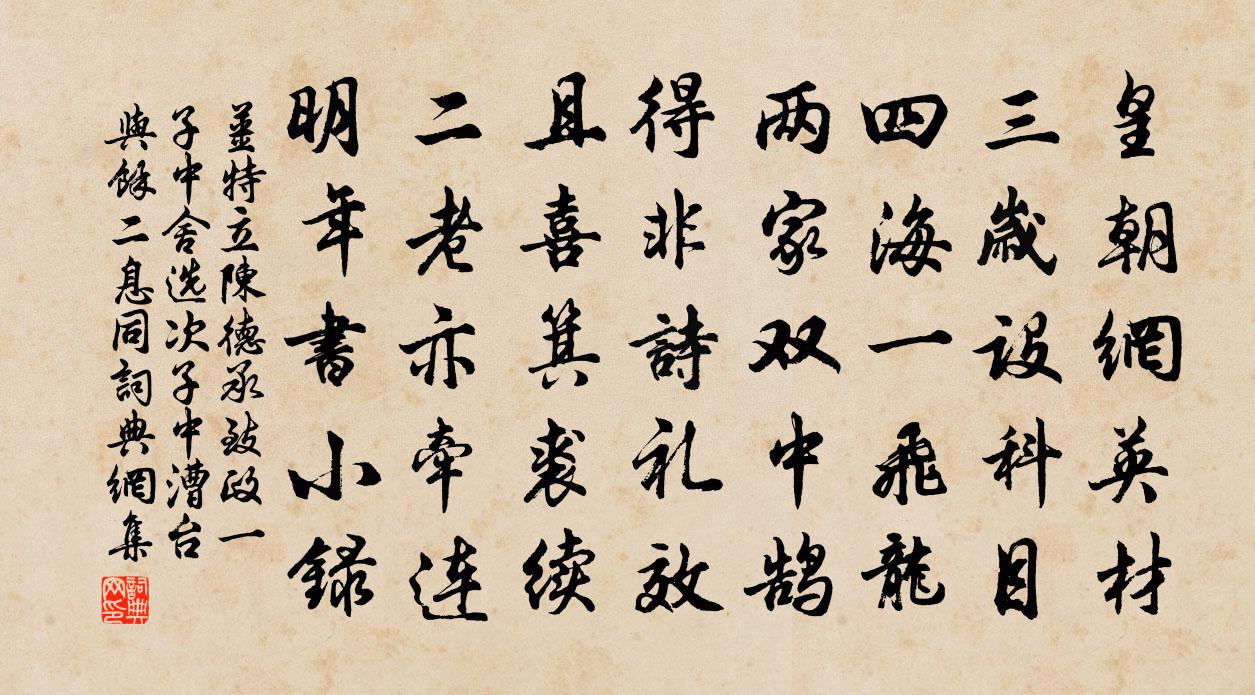 皇朝網英材
三歲設科目
四海一飛龍
两家双中鹄
得非詩礼效
且喜箕裘续
二老亦牽连
明年書小録
薑特立陳德承致政一
子中舍选次子中漕台
與餘二息同詞典網集
詞典
网印